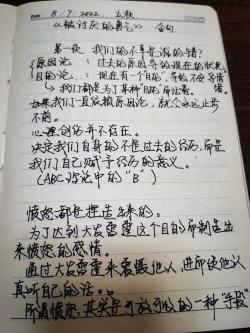 Date 8/7. 2022. 立秋
《被讨厌的勇气》 金句
第一夜 我们的不幸是谁的错?
原因论: 过去的原因导致现在的状况
目的论: 现在有一个目的,导致不安等情
↳ 我们都是为了某种"目的"而活着. 绪
如果我们一直依赖原因论,就会永远止步
不前。
心理创伤并不存在。
决定我们自身的不是过去的经历,而是
我们自己赋予经历的意义。
(ABC理论中的"B")
愤怒都是捏造出来的。
为了达到大发雷霆这个目的而制造出
来愤怒的感情。
通过大发雷霆来震慑他人,进而使他认
真听自己的话。
所谓愤怒其实是可放可收的一种"手段"